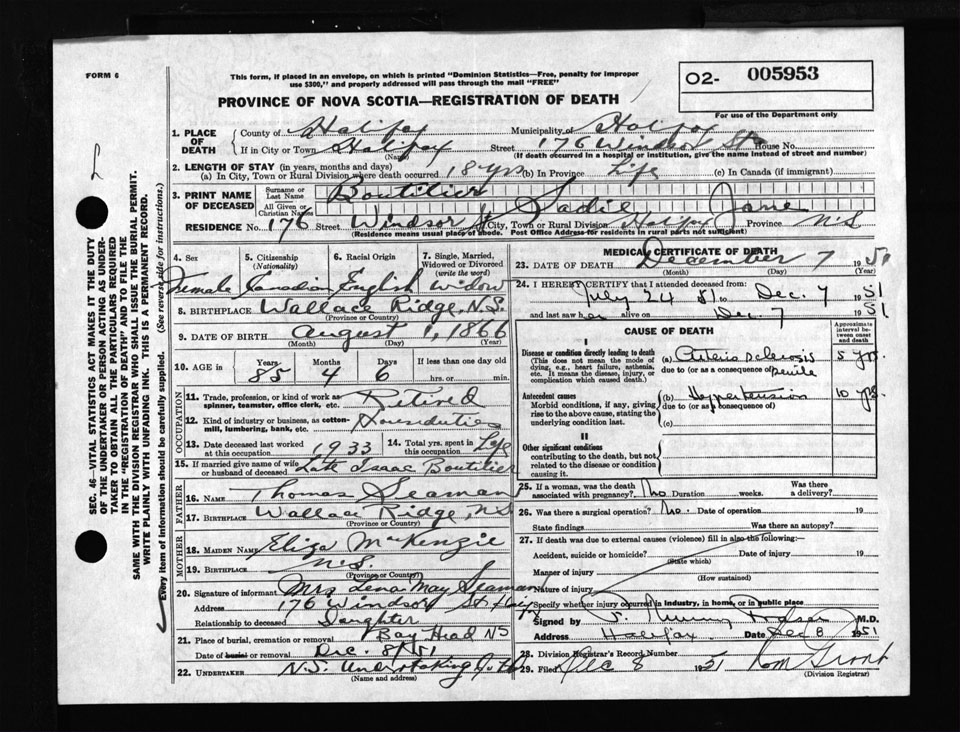 FORM 6
This form, if placed in an envelope, on which is printed "Dominion Statistics—Free, penalty for improper
use $300," and properly addressed will pass through the mail "FREE"
O2- 005953
For use of the Department only
PROVINCE OF NOVA SCOTIA—REGISTRATION OF DEATH
1. PLACE OF DEATH County of Halifax Municipality of Halifax
If in City or Town Halifax (Name) Street 176 Windsor St House No.
(If death occurred in a hospital or institution, give the name instead of street and number)
2. LENGTH OF STAY (in years, months and days)
(a) In City, Town or Rural Division where death occurred 18 yrs (b) In Province Life (c) In Canada (if immigrant)
3. PRINT NAME OF DECEASED Surname or Last Name Boutilier
All Given or Christian Names Sadie Jane
RESIDENCE No. 176 Street Windsor St City, Town or Rural Division Halifax Province N.S
(Residence means usual place of abode. Post Office Address for residents in rural parts not sufficient)
4. Sex Female
5. Citizenship (Nationality) Canadian
6. Racial Origin English
7. Single, Married, Widowed or Divorced (write the word) Widow
8. BIRTHPLACE Wallace Ridge, N.S.
(Province or Country)
9. DATE OF BIRTH August 1, 1866
(Month) (Day) (Year)
10. AGE in Years 85 Months 4 Days 6 If less than one day old hrs. or min.
OCCUPATION
11. Trade, profession, or kind of work as spinner, teamster, office clerk, etc. Retired
12. Kind of industry or business, as cotton-mill, lumbering, bank, etc. Housduties
13. Date deceased last worked at this occupation 1933
14. Total yrs. spent in this occupation Life
15. If married give name of wife or husband of deceased Late Isaac Boutilier
FATHER
16. NAME Thomas Seaman
17. BIRTHPLACE Wallace Ridge, NS
(Province or Country)
MOTHER
18. MAIDEN NAME Eliza MacKenzie
19. BIRTHPLACE N.S.
(Province or Country)
20. Signature of informant Mrs Lena May Seaman
Address 176 Windsor St Hfx
Relationship to deceased Daughter
21. Place of burial, cremation or removal Bay Head NS
Date of burial or removal Dec. 8/51
22. UNDERTAKER N.S. Undertaking
(Name and address)
MEDICAL CERTIFICATE OF DEATH
23. DATE OF DEATH December 7 1951
(Month) (Day) (Year)
24. I HEREBY CERTIFY that I attended deceased from:
July 24 51 to Dec. 7 1951
and last saw her alive on Dec. 7 1951
CAUSE OF DEATH
Approximate interval between onset and death
I
Disease or condition directly leading to death (a) Arteriosclerosis 5 yrs.
(This does not mean the mode of dying, e.g., heart failure, asthenia, etc. It means the disease, injury, or complication which caused death.)
due to (or as a consequence of) senile
Antecedent causes (b) Hypertension 10 yrs.
Morbid conditions, if any, giving rise to the above cause, stating the underlying condition last.
due to (or as a consequence of)
(c)
II
Other significant conditions
contributing to the death, but not related to the disease or condition causing it.
25. If a woman, was the death associated with pregnancy? No Duration weeks. Was there a delivery?
26. Was there a surgical operation? No. Date of operation 19
State findings Was there an autopsy?
27. If death was due to external causes (violence) fill in also the following:
Accident, suicide or homicide? Date of injury 19
(State which)
Manner of injury
(How sustained)
Nature of injury
Specify whether injury occurred in industry, in home, or in public place
Signed by M.D.
Address Halifax Date Dec 8 1951
28. Division Registrar's Record Number
29. Filed Dec 8 1951 Grant
(Division Registrar)
SEC. 46—VITAL STATISTICS ACT MAKES IT THE DUTY
OF THE UNDERTAKER OR PERSON ACTING AS UNDER-
TAKER TO OBTAIN ALL THE PARTICULARS REQUIRED
IN THE "REGISTRATION OF DEATH" AND TO FILE THE
SAME WITH THE DIVISION REGISTRAR WHO SHALL ISSUE THE BURIAL PERMIT.
WRITE PLAINLY WITH UNFADING INK. THIS IS A PERMANENT RECORD.
Every item of information should be carefully supplied. (See reverse side for instructions.)